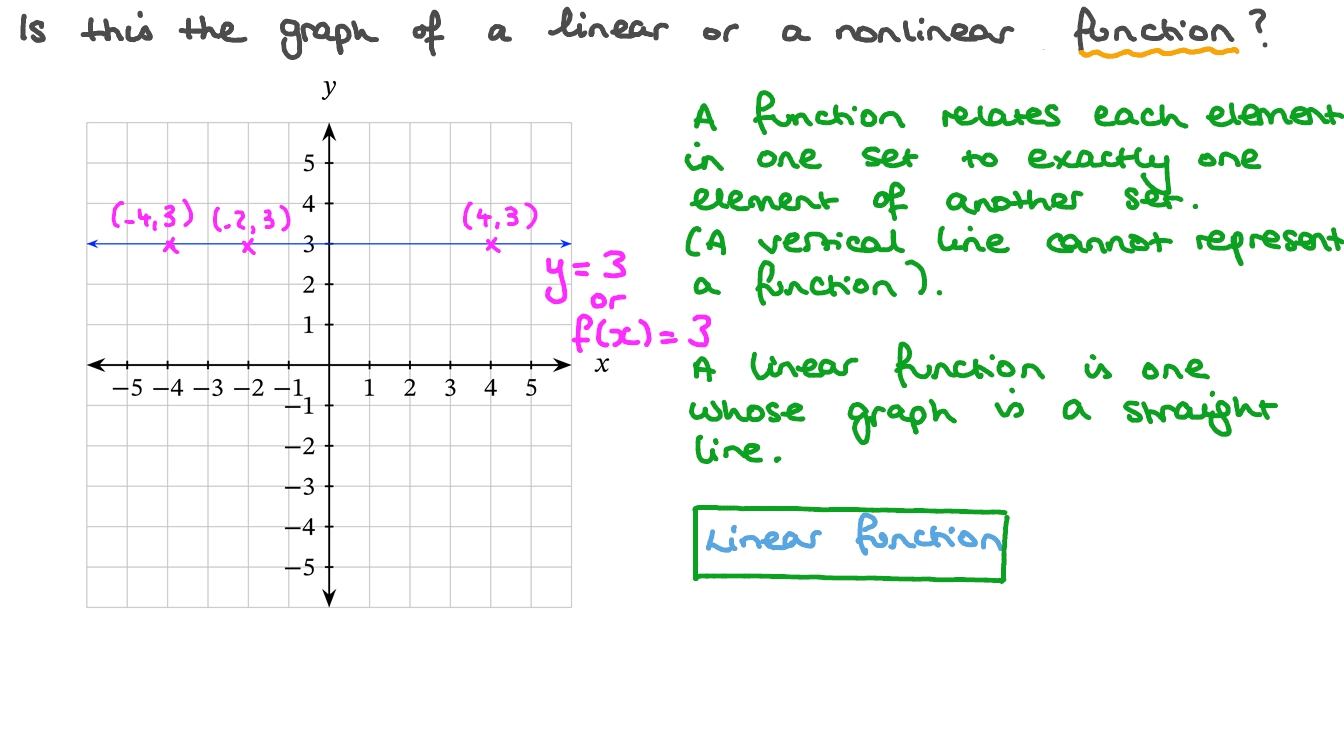 Is this the graph of a linear or a nonlinear function?
y
5
4
3
2
1
(-4,3) (-2,3) (4,3)
y=3
or
f(x)=3
x
−5 −4 −3 −2 −1 1 2 3 4 5
−1
−2
−3
−4
−5
A function relates each element
in one set to exactly one
element of another set.
(A vertical line cannot represent
a function).
A linear function is one
whose graph is a straight
line.
Linear function